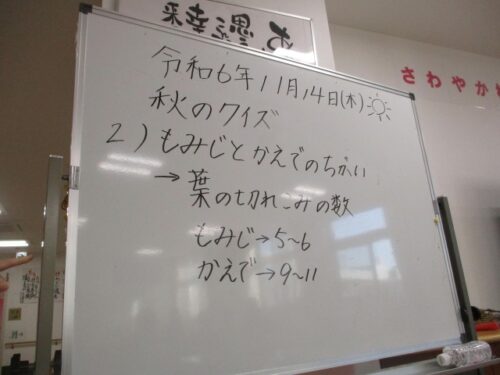 令和6年11月14日(木)
秋のクイズ
2)もみじとかえでのちがい
→葉の切れこみの数
もみじ→5~6
かえで→9~11
さわやか